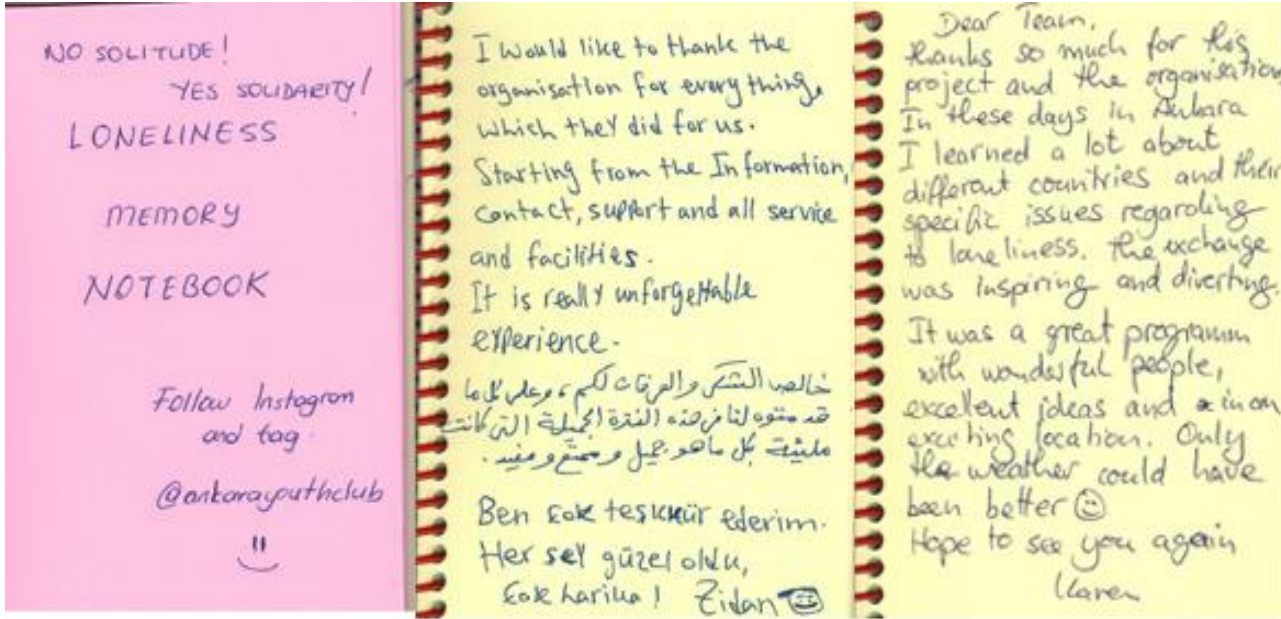 NO SOLITUDE!
YES SOLIDARITY!
LONELINESS
MEMORY
NOTEBOOK
Follow Instagram
and tag
@ankarayouthclub
I would like to thank the
organisation for every thing,
which they did for us.
Starting from the Information,
contact, support and all service
and facilities.
It is really unforgettable
experience.
خالص الشكر والعرفان لكم، وعلى كل ما
قدمتوه لنا في هذه الفترة الجميلة التي كانت
مليئة بكل ما هو جميل وممتع ومفيد.
Ben çok teşkkür ederim.
Her şey güzel oldu,
çok harika! Zidan
Dear Team,
thanks so much for this
project and the organisation
In these days in Ankara
I learned a lot about
different countries and their
specific issues regarding
to loneliness. The exchange
was inspiring and diverting.
It was a great programm
with wonderful people,
excellent ideas and in an
exciting location. Only
the weather could have
been better ☺
Hope to see you again
Karen